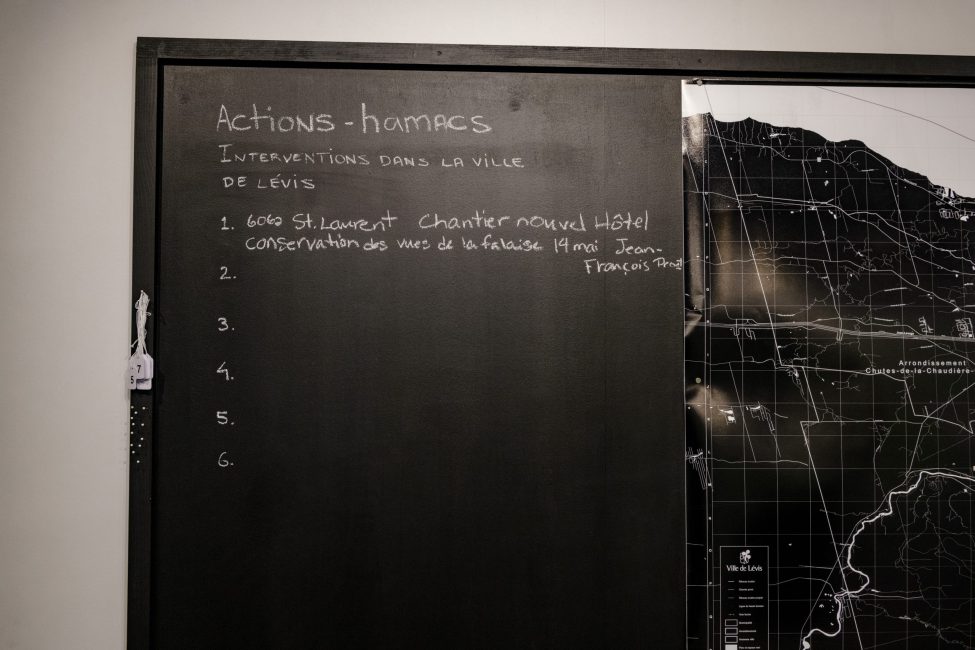 Actions - hamacs
Interventions dans la ville
de Lévis
1. 6062 St. Laurent Chantier nouvel Hôtel
conservation des vues de la falaise 14 mai Jean-
François
2.
3.
4.
5.
6.
7
5
Arrondissement
Chutes-de-la-Chaudière
Ville de Lévis